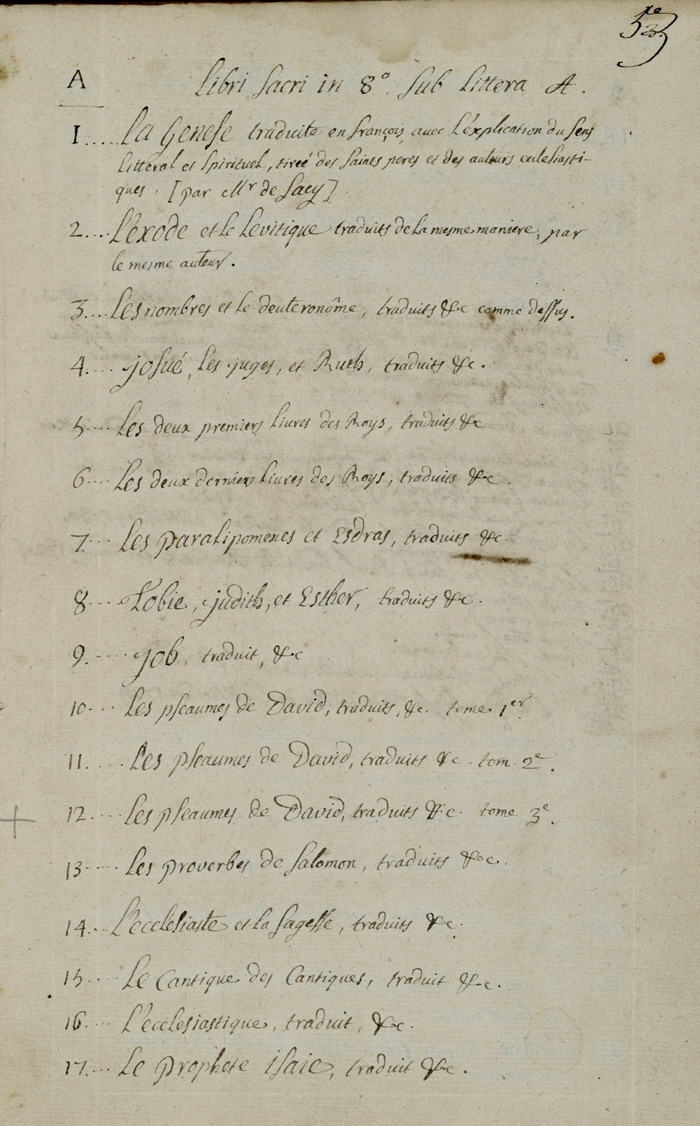 A
Libri Sacri in 8°. Sub Littera A.
1..... La Genese traduite en françois, avec L'explication du sens
litteral et spirituel, tireé des saints peres et des auteurs eclesiasti-
ques. [par Mr de Sacy]
2.... L'exode et le Levitique traduits de la mesme maniere, par
le mesme auteur.
3.... Les nombres et le deuteronôme, traduits &c comme dessus.
4.... josué, les juges, et Ruth, traduits &c.
5.... Les deux premiers livres des Roys, traduits &c
6.... Les deux derniers livres des Roys, traduits &c.
7.... Les paralipomenes et Esdras, traduits &c.
8.... Tobie, judith, et Esther, traduits &c.
9.... job, traduit, &c
10.... Les pseaumes de David, traduits, &c. tome 1er
11..... Les pseaumes de David, traduits &c. tom. 2e.
12.... Les pseaumes de David, traduits &c. tome 3e.
13.... Les proverbes de Salomon, traduits &c.
14... L'ecclesiaste et la Sagesse, traduits &c.
15.... Le Cantique des Cantiques, traduit &c.
16.... L'ecclesiastique, traduit, &c.
17.... Le prophete isaie, traduit &c.